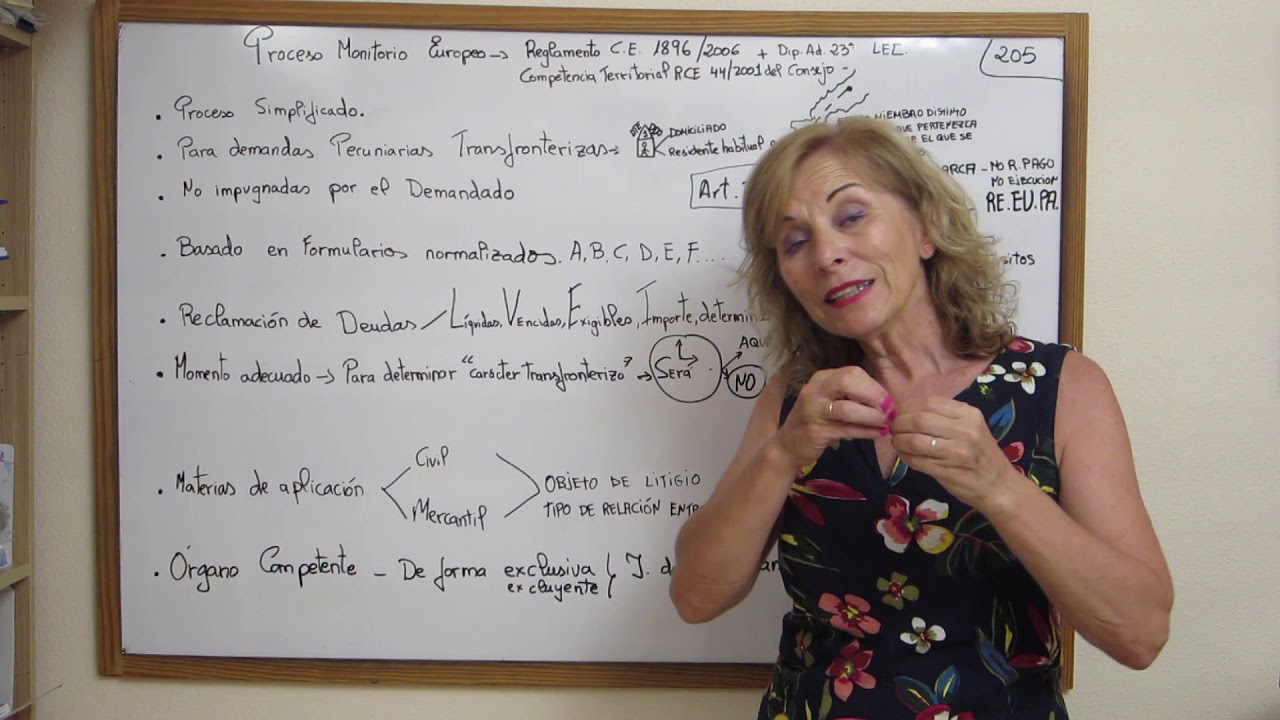 Proceso Monitorio Europeo → Reglamento C.E. 1896/2006 + Dip. Ad. 23ª LEC.
205
Competencia Territorial RCE 44/2001 del Consejo -
• Proceso Simplificado.
MIEMBRO DISTINTO
QUE PERTENEZCA
EL QUE SE
• Para demandas Pecuniarias Transfronterizas →
DOMICILIADO
Residente habitual
• No impugnadas por el Demandado
Art.
- NO R. PAGO
NO EJECUCION
RE.EU.PA.
• Basado en Formularios normalizados. A, B, C, D, E, F....
• Reclamación de Deudas / Líquidas, Vencidas, Exigibles, Importe,
• Momento adecuado → Para determinar "carácter Transfronterizo" → SERÁ
NO
• Materias de aplicación
Civil
Mercantil
OBJETO DE LITIGIO
TIPO DE RELACIÓN
• Órgano Competente - De forma exclusiva
excluyente
J.